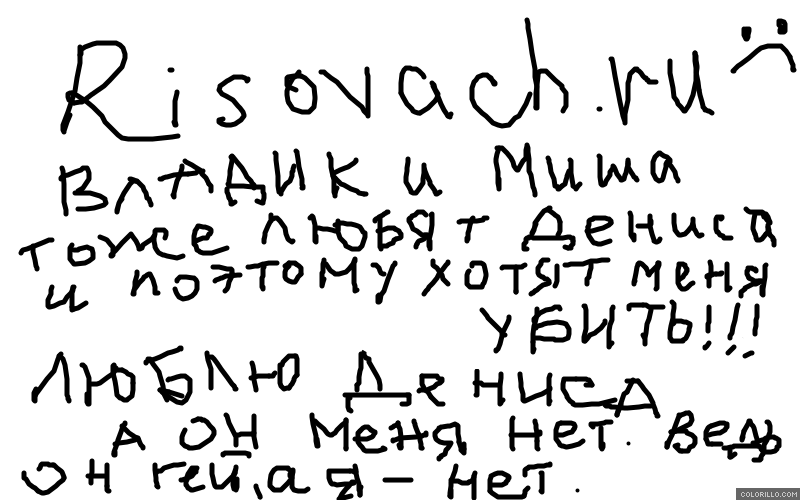 Risovach.ru :(
ВЛАДИК и Миша
тоже любят Дениса
и поэтому хотят меня
УБИТЬ!!!
ЛЮБЛЮ ДЕНИСА
А ОН меня нет. Ведь
он гей, а я – нет.
COLORILLO.COM